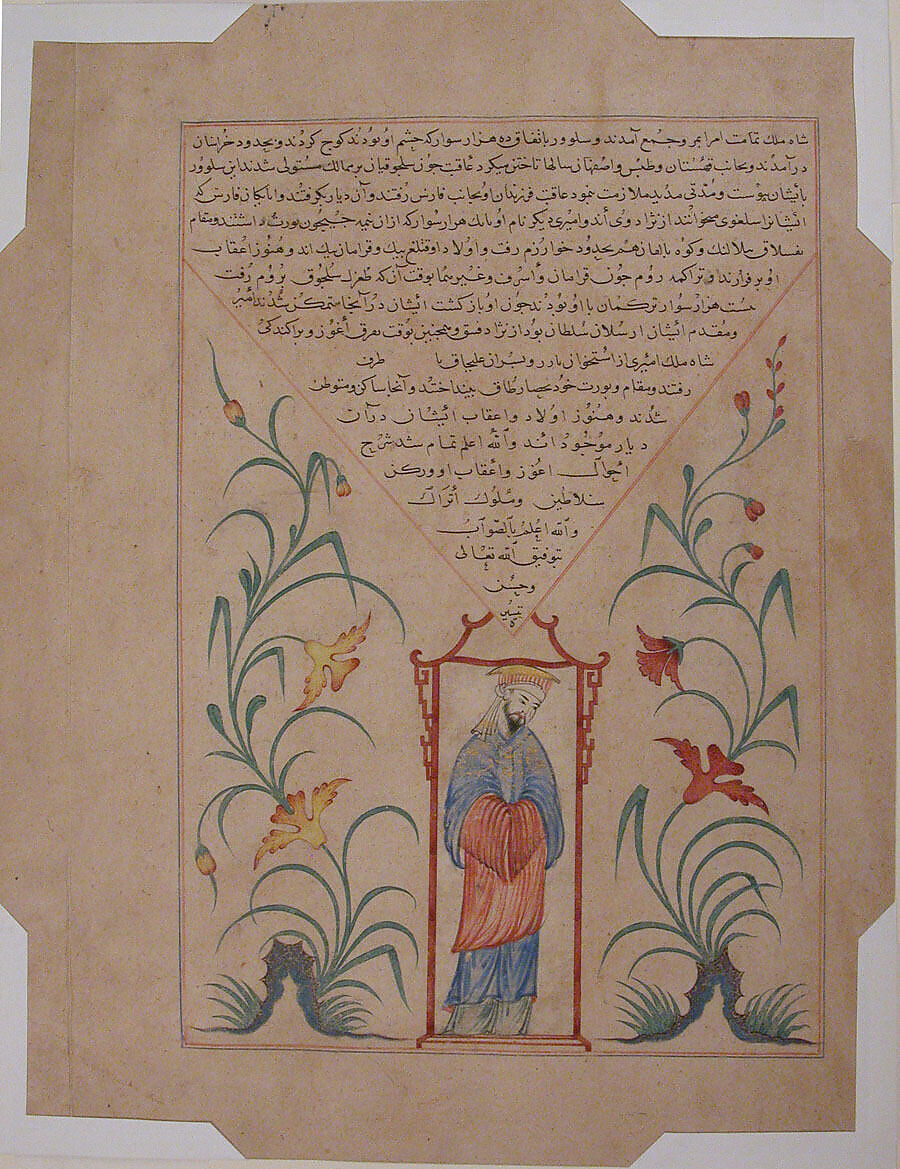 شاه ملك تمامت امرا بمر و جمع آمدند و سلوور باتفاق ده هزار سوار كه حشم او بودند كوچ كردند و بحدود خراسان
در آمدند و بجانب قهستان و طبس و اصفهان سالها تاختن ميكرد عاقبت چون سلجوقيان بر ممالك مستولى شدند ابن سلوور
با ايشان پيوست و مدتى مديد ملازمت نمود عاقبت فرزندان او بجانب فارس رفتند و آن ديار بگرفتند و اتابكان فارس كه
ايشانرا سلغوى ميخوانند از نژاد وى اند و اميرى ديكر نام او با يك هزار سوار كه از آن خيمه جيحون يورت داشتند و مقام
و كوه هم بحدود خوارزم رفت و اولاد او قتلغ بيك و قرامان بيك اند و هنوز اعقاب
او برقرارند و تراكمه روم چون قرامان و اشرف و غيرهما بوقت آن كه طغرل سلجوق بروم رفت
بيست هزار سوار تركمان با او بودند چون او بازكشت ايشان در آنجا متمكن شدند امير
و مقدم ايشان ارسلان سلطان بود از نژاد و همچنين بوقت تفرق اغوز و پراكندكى
شاه ملك اميرى از استخوان يازر و پسران عليجاق با طرف
رفتند و مقام و يورت خود بحصار طاق بينداختند و آنجا ساكن و متوطن
شدند و هنوز اولاد و اعقاب ايشان در آن
ديار موجود اند و الله اعلم تمام شد شرح
احوال اغوز و اعقاب او و ذكر
سلاطين و ملوك أتراك
و الله اعلم بالصواب
بتوفيق الله تعالى
و حسن
تيسيره